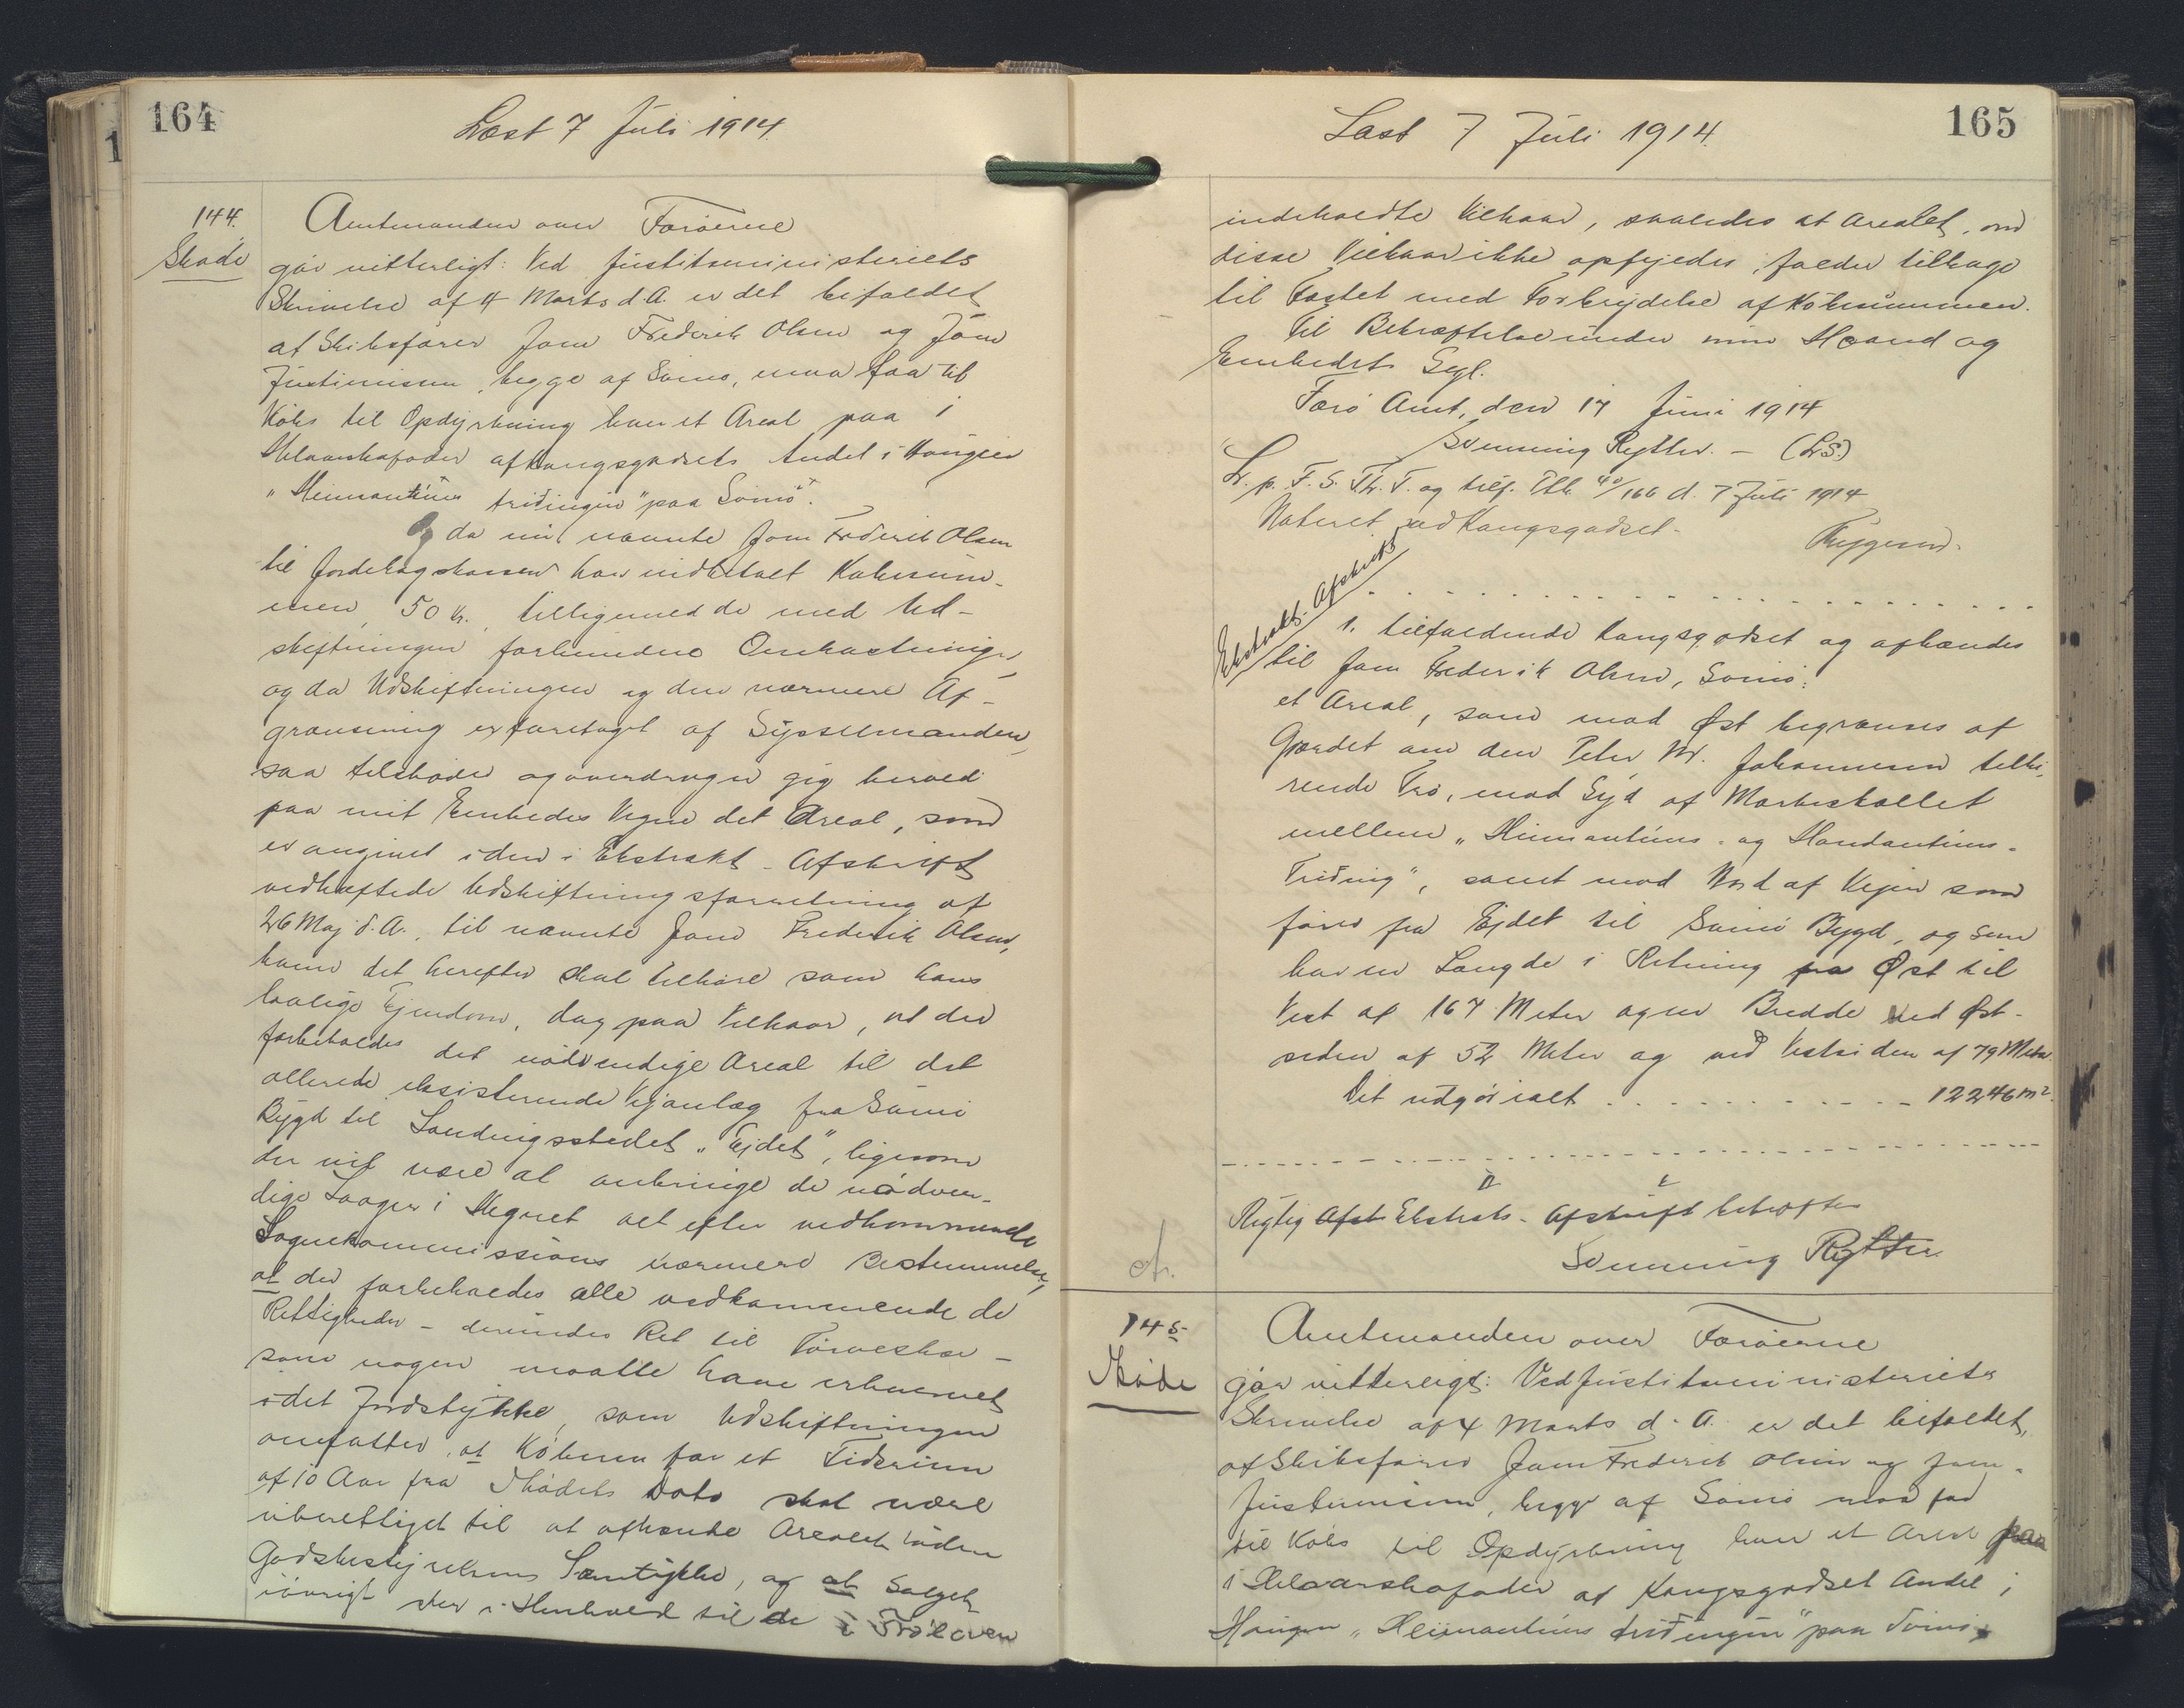 164
Læst 7 Juli 1914.
144.
Skøde
Amtmanden over Færøerne
gør vitterligt: Ved Justitsministeriets
Skrivelse af 4 Marts d.A. er det bifaldet
at Skibsfører Joen Frederik Olsen og Joen
Justinussen, begge af Svinø, maa faa til
Købs til Opdyrkning hver et Areal paa i
af Kongsgodsets Andel i Haugien
"Heimantúns tridingin" paa Svinø.
Og da nu nævnte Joen Frederik Olsen
til Jordebogskassen har indbetalt Købesum-
men, 50 Kr., tilligemed de med Ud-
skiftningen forbundne Omkostninger,
og da Udskiftningen og den nærmere Af-
grænsning er foretaget af Sysselmanden,
saa tilskøder og overdrager jeg herved
paa mit Embedes Vegne det Areal, som
er angivet i den i Ekstrakt-Afskrift
vedhæftede Udskiftningsforretning af
26 Maj d.A. til nævnte Joen Frederik Olsen,
ham det herefter skal tilhøre som hans
lovlige Ejendom, dog paa Vilkaar, at der
forbeholdes det nødvendige Areal til det
allerede eksisterende Vejanlæg fra Svinø
Bygd til Landingsstedet "Ejdet", ligesom
der vil være at anbringe de nødven-
dige Laager i Hegnet alt efter vedkommende
Sognekommissions nærmere Bestemmelse,
at der forbeholdes alle vedkommende de
Rettigheder - derunder Ret til Tørveskær -
som nogen maatte have erhvervet
i det Jordstykke, som Udskiftningen
omfatter, at Køberen for et Tidsrum
af 10 Aar fra Skødets Dato skal være
uberettiget til at afhænde Arealet uden
Godsbestyrelsens Samtykke, og at Salget
iøvrigt sker i Henhold til de i Trøloven
165
Læst 7 Juli 1914.
indeholdte Vilkaar, saaledes at Arealet, om
disse Vilkaar ikke opfyldes, falder tilbage
til Fæstet med Forbrydelse af Købesummen.
Til Bekræftelse under min Haand og
Embedets Segl.
Færø Amt, den 17 Juni 1914
Svenning Rytter. - (L.S.)
L. p. F. S. Th. T. og tilf. Ptk. 40/166 d. 7 Juli 1914
Noteret ved Kongsgodset.
Ekstrakt. Afskrift
1. tilfaldende Kongsgodset og afhændes
til Joen Frederik Olsen, Svinø:
et Areal, som mod Øst begrænses af
Gærdet om den Peter M. Johannesen tilhø-
rende Trø, mod Syd af Markeskellet
mellem "Heimantúns- og Handantúns-
Triding", samt mod Nord af Vejen som
fører fra Ejdet til Svinø Bygd, og som
har en Længde i Retning fra Øst til
Vest af 167 Meter og en Bredde ved Øst-
siden af 52 Meter og ved Vestsiden af 79 Meter.
Det udgør ialt - 12246 m².
Rigtig Afst Ekstrakt-Afskrift bekræftes
Svenning Rytter.
145
Skøde
Amtmanden over Færøerne
gør vitterligt: Ved Justitsministeriets
Skrivelse af 4 Marts d.A. er det bifaldet,
at Skibsfører Joen Frederik Olsen og Joen
Justinussen, begge af Svinø maa faa
til Købs til Opdyrkning hver et Areal paa
i af Kongsgodset Andel i
Haugen "Heimantúns tridingin" paa Svinø,